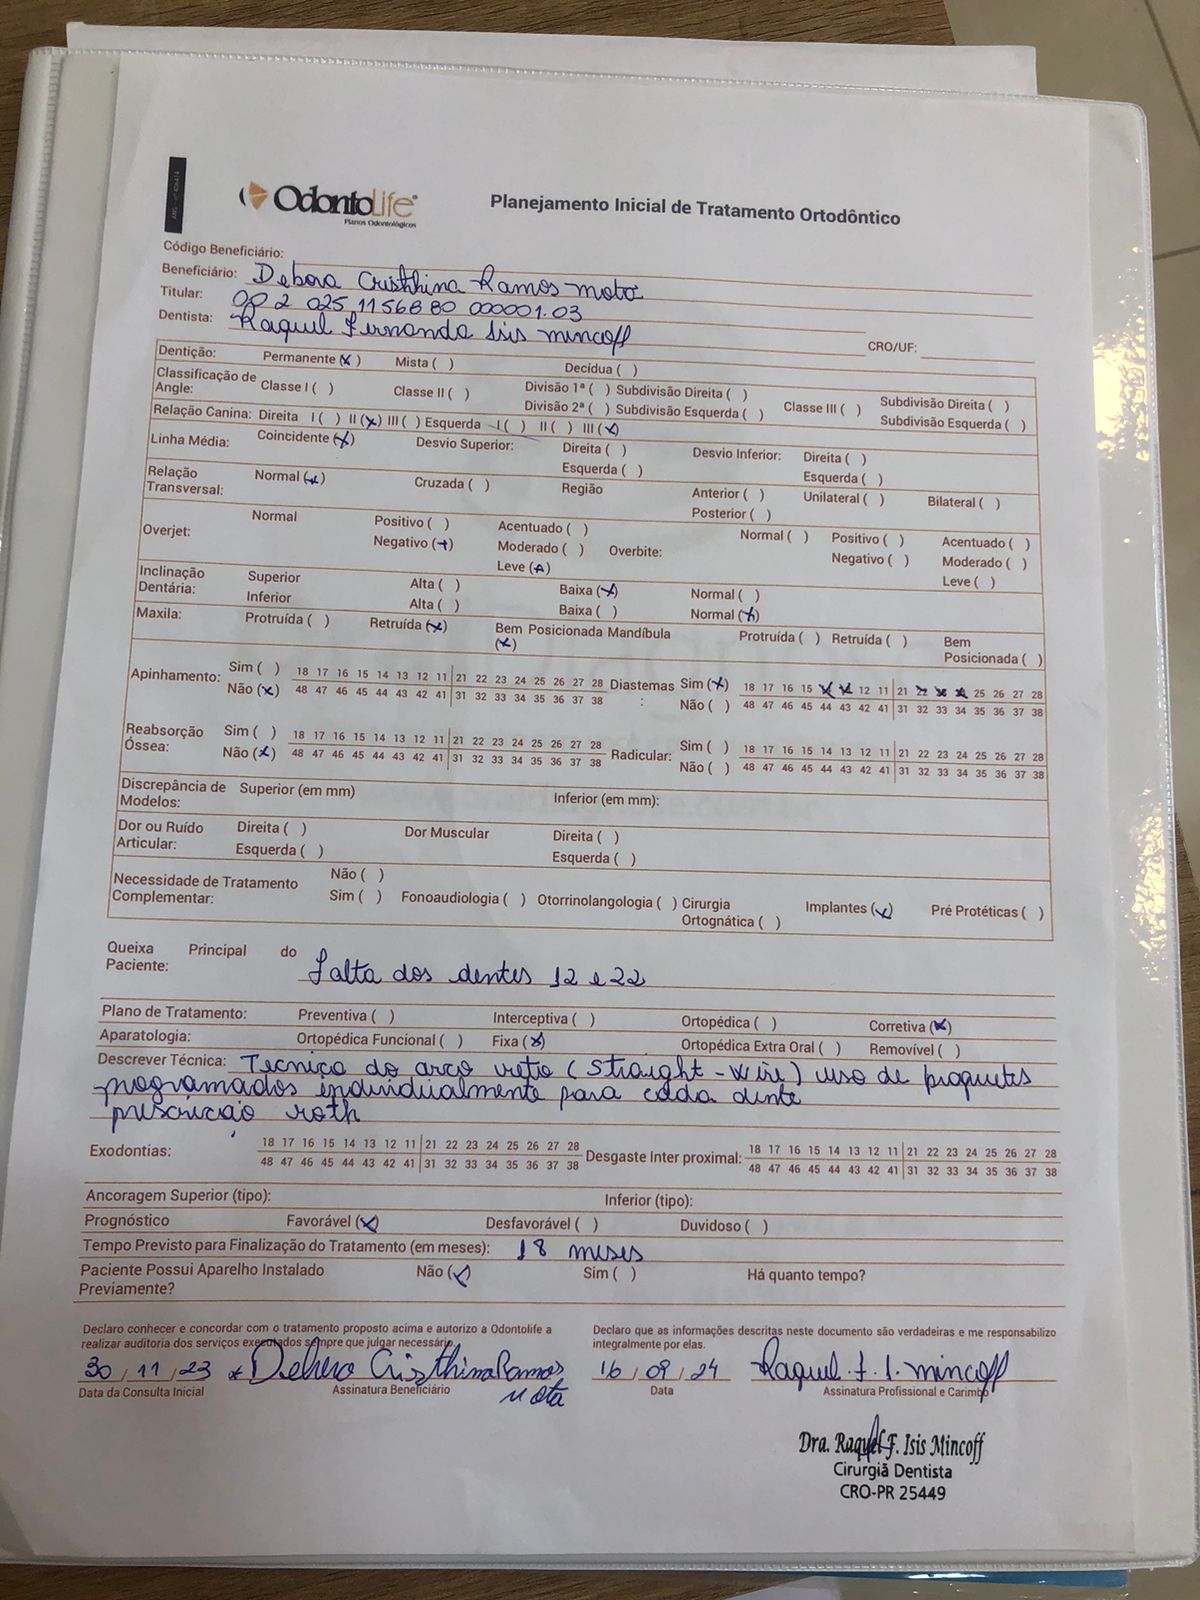 OdontoLife
Planos Odontológicos
Planejamento Inicial de Tratamento Ortodôntico
Código Beneficiário:
Beneficiário: Debora Cristhina Ramos Mota
Titular: 00 2 025 11568 80 000001.03
Dentista: Raquel Fernanda Isis Mincoff CRO/UF:
Dentição: Permanente (x) Mista ( ) Decídua ( )
Classificação de Angle: Classe I ( ) Classe II ( ) Divisão 1ª ( ) Subdivisão Direita ( ) Classe III ( ) Subdivisão Direita ( )
Divisão 2ª ( ) Subdivisão Esquerda ( ) Subdivisão Esquerda ( )
Relação Canina: Direita I ( ) II (x) III ( ) Esquerda I ( ) II ( ) III (x)
Linha Média: Coincidente (x) Desvio Superior: Direita ( ) Desvio Inferior: Direita ( )
Esquerda ( ) Esquerda ( )
Relação Transversal: Normal (x) Cruzada ( ) Região Anterior ( ) Unilateral ( ) Bilateral ( )
Posterior ( )
Overjet: Normal Positivo ( ) Acentuado ( ) Overbite: Normal ( ) Positivo ( ) Acentuado ( )
Negativo (x) Moderado ( ) Negativo ( ) Moderado ( )
Leve (x) Leve ( )
Inclinação Dentária: Superior Alta ( ) Baixa (x) Normal ( )
Inferior Alta ( ) Baixa ( ) Normal (x)
Maxila: Protruída ( ) Retruída (x) Bem Posicionada (x) Mandíbula Protruída ( ) Retruída ( ) Bem Posicionada ( )
Apinhamento: Sim ( ) 18 17 16 15 14 13 12 11 21 22 23 24 25 26 27 28 Diastemas: Sim (x) 18 17 16 15 x x 12 11 21 x x x 25 26 27 28
Não (x) 48 47 46 45 44 43 42 41 31 32 33 34 35 36 37 38 Não ( ) 48 47 46 45 44 43 42 41 31 32 33 34 35 36 37 38
Reabsorção Óssea: Sim ( ) 18 17 16 15 14 13 12 11 21 22 23 24 25 26 27 28 Radicular: Sim ( ) 18 17 16 15 14 13 12 11 21 22 23 24 25 26 27 28
Não (x) 48 47 46 45 44 43 42 41 31 32 33 34 35 36 37 38 Não ( ) 48 47 46 45 44 43 42 41 31 32 33 34 35 36 37 38
Discrepância de Modelos: Superior (em mm) Inferior (em mm):
Dor ou Ruído Articular: Direita ( ) Dor Muscular Direita ( )
Esquerda ( ) Esquerda ( )
Necessidade de Tratamento Complementar: Não ( )
Sim ( ) Fonoaudiologia ( ) Otorrinolangologia ( ) Cirurgia Ortognática ( ) Implantes (x) Pré Protéticas ( )
Queixa Principal do Paciente: Falta dos dentes 12 e 22
Plano de Tratamento: Preventiva ( ) Interceptiva ( ) Ortopédica ( ) Corretiva (x)
Aparatologia: Ortopédica Funcional ( ) Fixa (x) Ortopédica Extra Oral ( ) Removível ( )
Descrever Técnica: Tecnica do arco reto (Straight-Wire) uso de braquetes
programados individualmente para cada dente
prescricão roth
Exodontias: 18 17 16 15 14 13 12 11 21 22 23 24 25 26 27 28 Desgaste Inter proximal: 18 17 16 15 14 13 12 11 21 22 23 24 25 26 27 28
48 47 46 45 44 43 42 41 31 32 33 34 35 36 37 38 48 47 46 45 44 43 42 41 31 32 33 34 35 36 37 38
Ancoragem Superior (tipo): Inferior (tipo):
Prognóstico Favorável (x) Desfavorável ( ) Duvidoso ( )
Tempo Previsto para Finalização do Tratamento (em meses): 18 meses
Paciente Possui Aparelho Instalado Previamente? Não (x) Sim ( ) Há quanto tempo?
Declaro conhecer e concordar com o tratamento proposto acima e autorizo a Odontolife a
realizar auditoria dos serviços executados sempre que julgar necessário.
Declaro que as informações descritas neste documento são verdadeiras e me responsabilizo
integralmente por elas.
30/11/23 Debora Cristhina Ramos Mota 16/09/24 Raquel F. I. Mincoff
Data da Consulta Inicial Assinatura Beneficiário Data Assinatura Profissional e Carimbo
Dra. Raquel F. Isis Mincoff
Cirurgiã Dentista
CRO-PR 25449